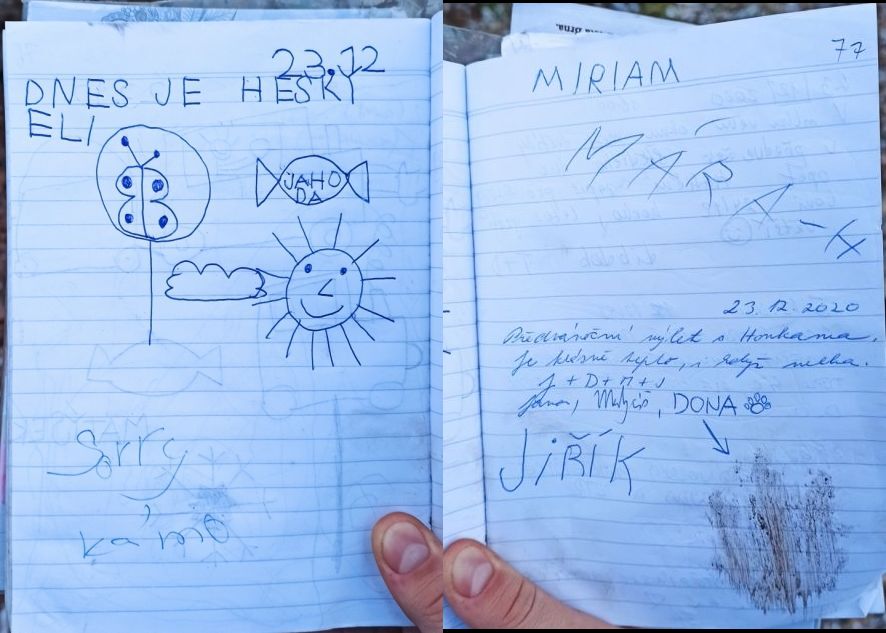 23.12
DNES JE HESKÝ
ELI
JAHO
DA
Sorry
kámo
77
MIRIAM
23.12.2020
Předvánoční výlet s Honkama.
Je krásně teplo, i když mlha.
J + D + M + J
Jana, Matyáš, DONA
JIŘÍK